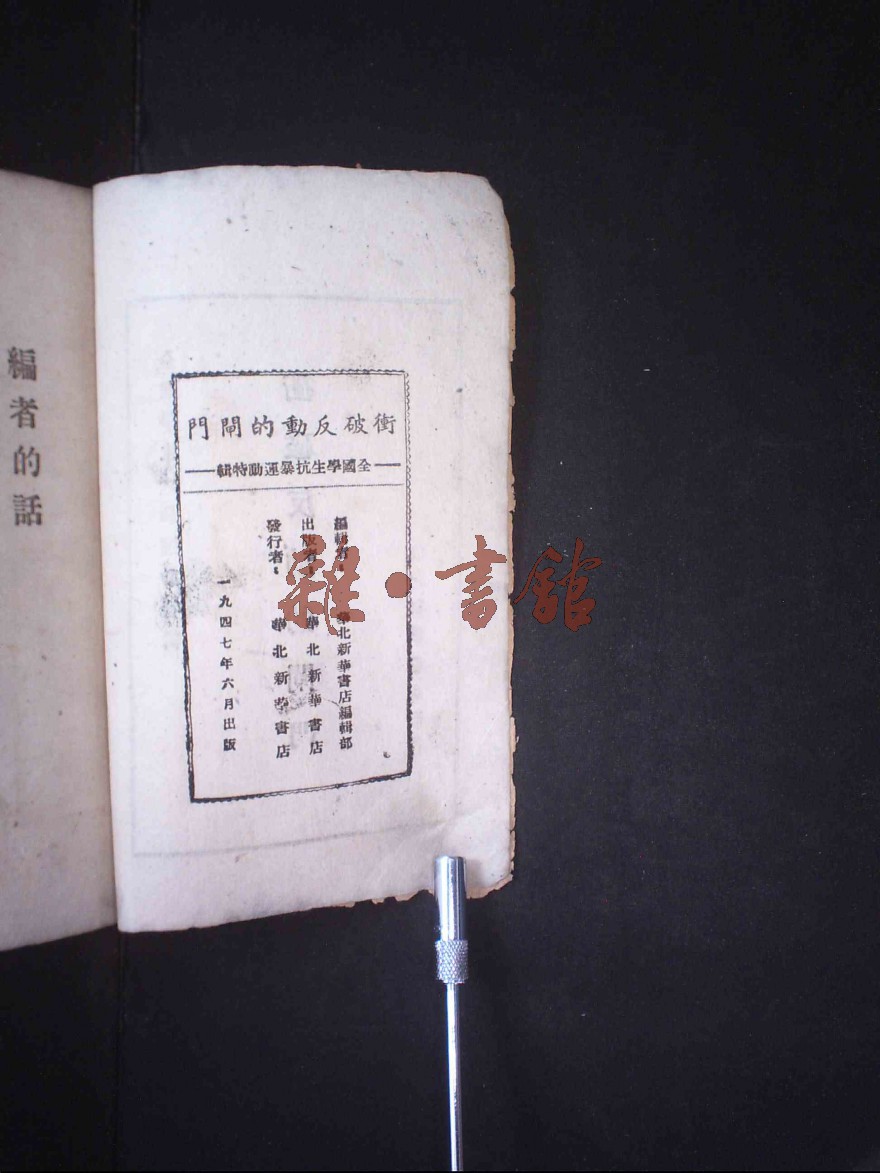 衝破反動的閘門
——全國學生抗暴運動特輯——
編輯者：華北新華書店編輯部
出版者：華北新華書店
發行者：華北新華書店
一九四七年六月出版
編者的話
雜·書館